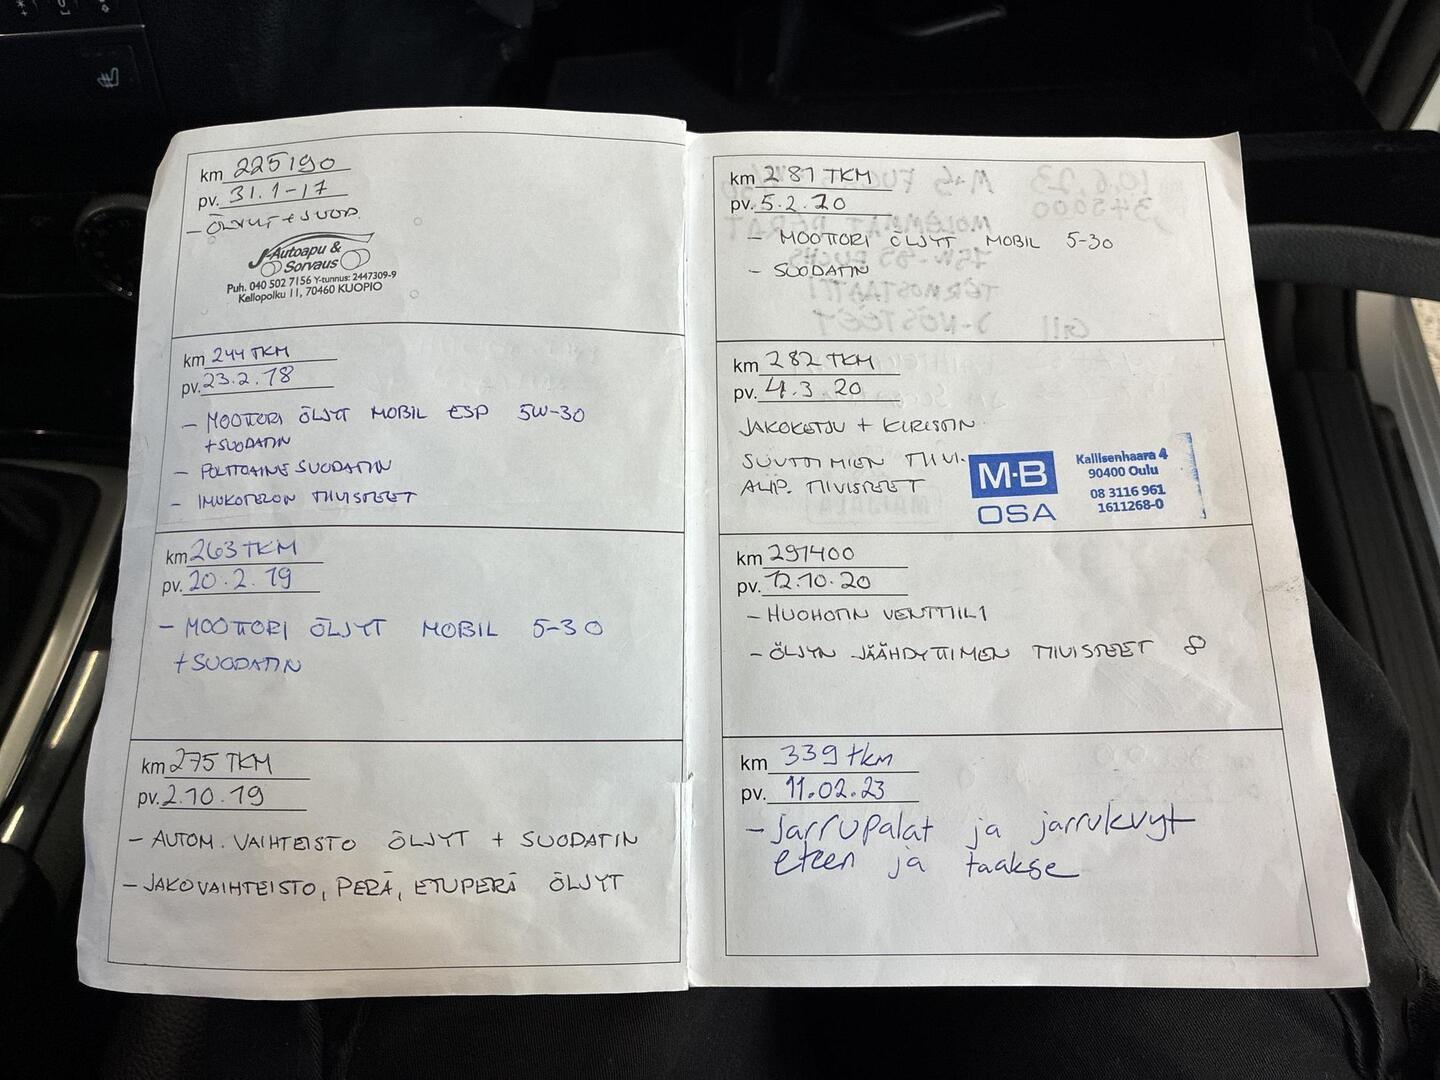 km 225190
pv. 31.1-17
- ÖLJYT + SUOD.
J-Autoapu &
Sorvaus
Puh. 040 502 7156 Y-tunnus: 2447309-9
Kellopolku 11, 70460 KUOPIO
km 244 TKM
pv. 23.2.18
- MOOTTORI ÖLJYT MOBIL ESP 5W-30
+SUODATIN
- POLTTOAINE SUODATIN
- IMUKOTELON TIIVISTEET
km 263 TKM
pv. 20.2.19
- MOOTTORI ÖLJYT MOBIL 5-30
+SUODATIN
km 275 TKM
pv. 2.10.19
- AUTOM. VAIHTEISTO ÖLJYT + SUODATIN
- JAKOVAIHTEISTO, PERÄ, ETUPERÄ ÖLJYT
km 281 TKM
pv. 5.2.20
- MOOTTORI ÖLJYT MOBIL 5-30
- SUODATIN
km 282 TKM
pv. 4.3.20
JAKOKETJU + KIRISTIN
SUUTTIMIEN TIIVI.
ALIP. TIIVISTEET
M·B
OSA
Kallisenhaara 4
90400 Oulu
08 3116 961
1611268-0
km 291400
pv. 12.10.20
- HUOHOTIN VENTTIILI
- ÖLJYN JÄÄHDYTTIMEN TIIVISTEET
km 339 tkm
pv. 11.02.23
- Jarrupalat ja jarrulevyt
eteen ja taakse